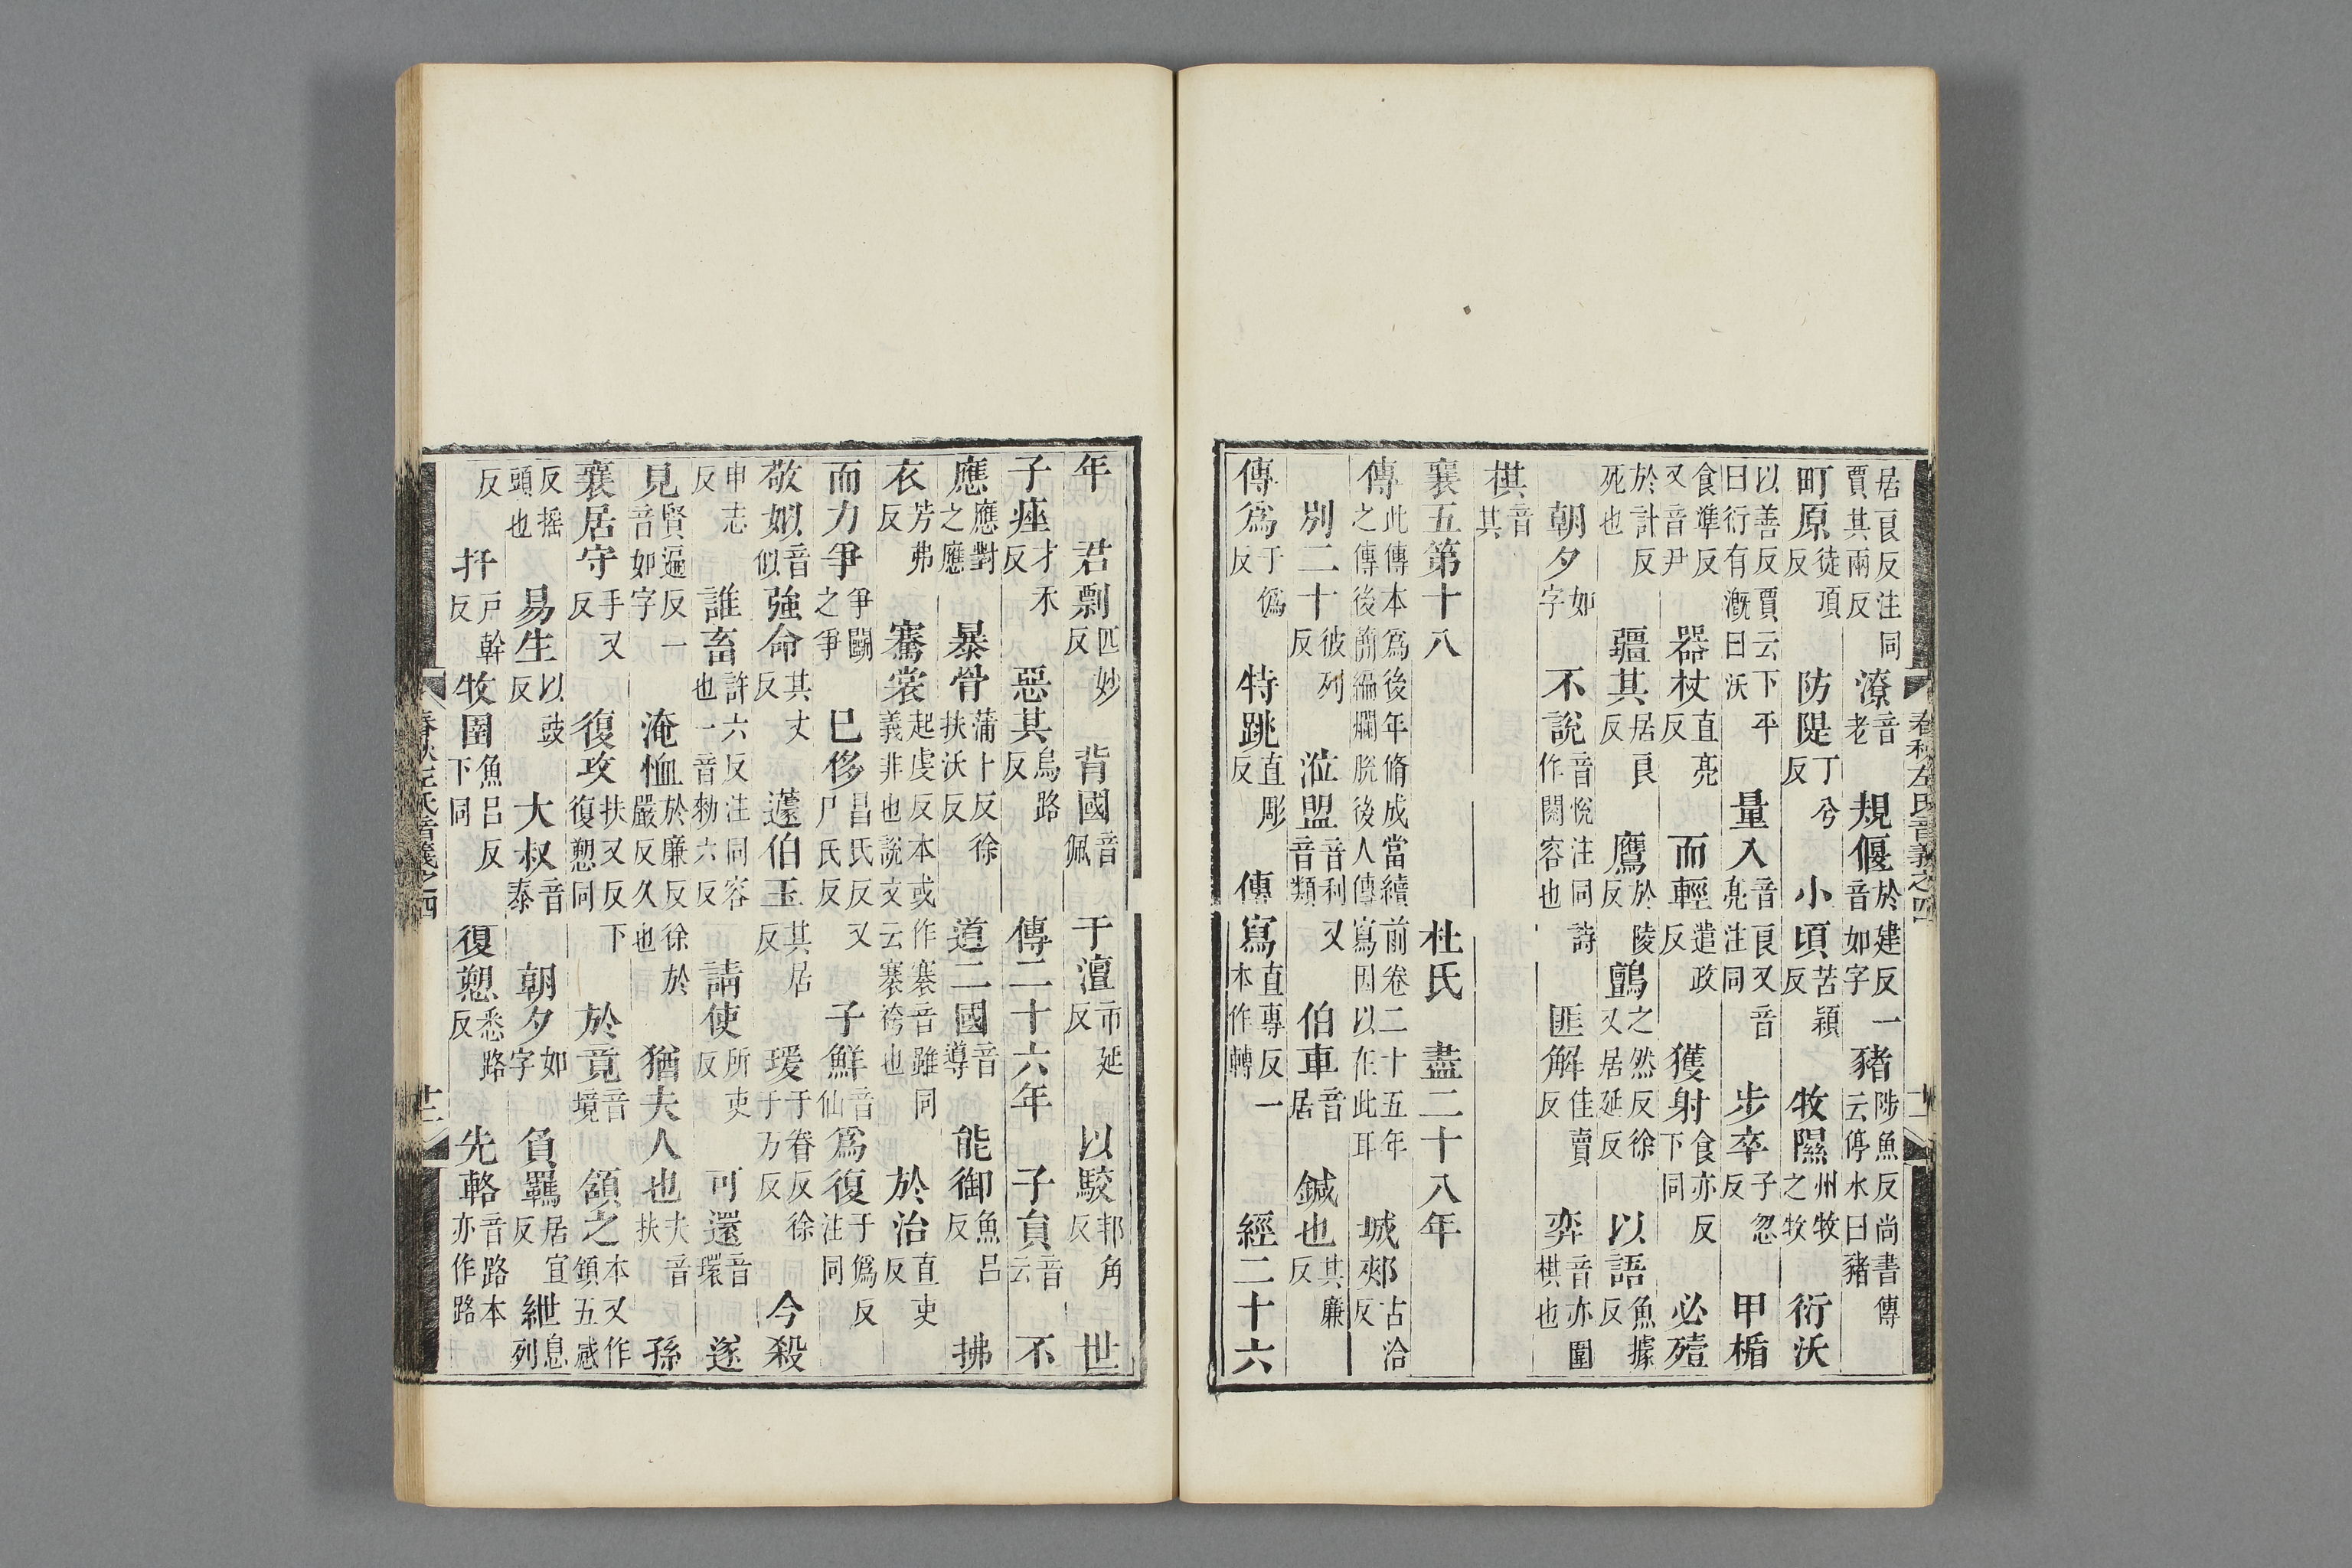 居良反注同賈其兩反潦音老規偃於建反一音如字豬陟魚反尚書傳云停水曰豬
町原徒頂反防隄丁兮反小頃苦潁反牧隰州牧之牧衍沃
以善反賈云下平曰衍有漑曰沃量入音良又音亮注同步卒子忽反甲楯
食準反又音尹器杖直亮反而輕遣政反獲射食亦反下同必殪
於計反死也疆其居良反鷹於陵反鸇之然反徐又居延反以語魚據反
朝夕如字不說音悅注同詩作閱容也匪解佳賣反弈音亦圍棋也
棋音其
襄五第十八　杜氏　盡二十八年
傳此傳本爲後年脩成當續前卷二十五年之傳後簡編爛脫後人傳寫因以在此耳城郟古洽反
別二十彼列反涖盟音利又音類伯車音居鍼也其廉反
傳爲于僞反特跳直彫反傳寫直專反一本作轉經二十六
年君剽匹妙反背國音佩于澶市延反以駮邦角反世
子痤才禾反惡其烏路反傳二十六年子貟音云不
應應對之應暴骨蒲卜反徐扶沃反道二國音導能御魚呂反拂
衣芳弗反褰裳起虔反本或作褰音雖同義非也說文云褰袴也於治直吏反
而力爭爭鬬之爭已侈昌氏反又尸氏反子鮮音仙爲復于僞反注同
敬姒音似強命其丈反蘧伯玉其居反瑗于眷反徐于万反今殺
申志反誰畜許六反注同容也一音勑六反請使所吏反可還音環遂
見賢遍反一音如字淹恤於廉反徐於嚴反久也猶夫人也夫音扶孫
襄居守手又反復攻扶又反下復愬同於竟音境頷之本又作顉五感
反搖頭也易生以豉反大叔音泰朝夕如字負羈居宜反紲息列
反扞戶幹反牧圉魚呂反下同復愬悉路反先輅音路本亦作路
春秋左氏音義之四
春秋左氏音義之四